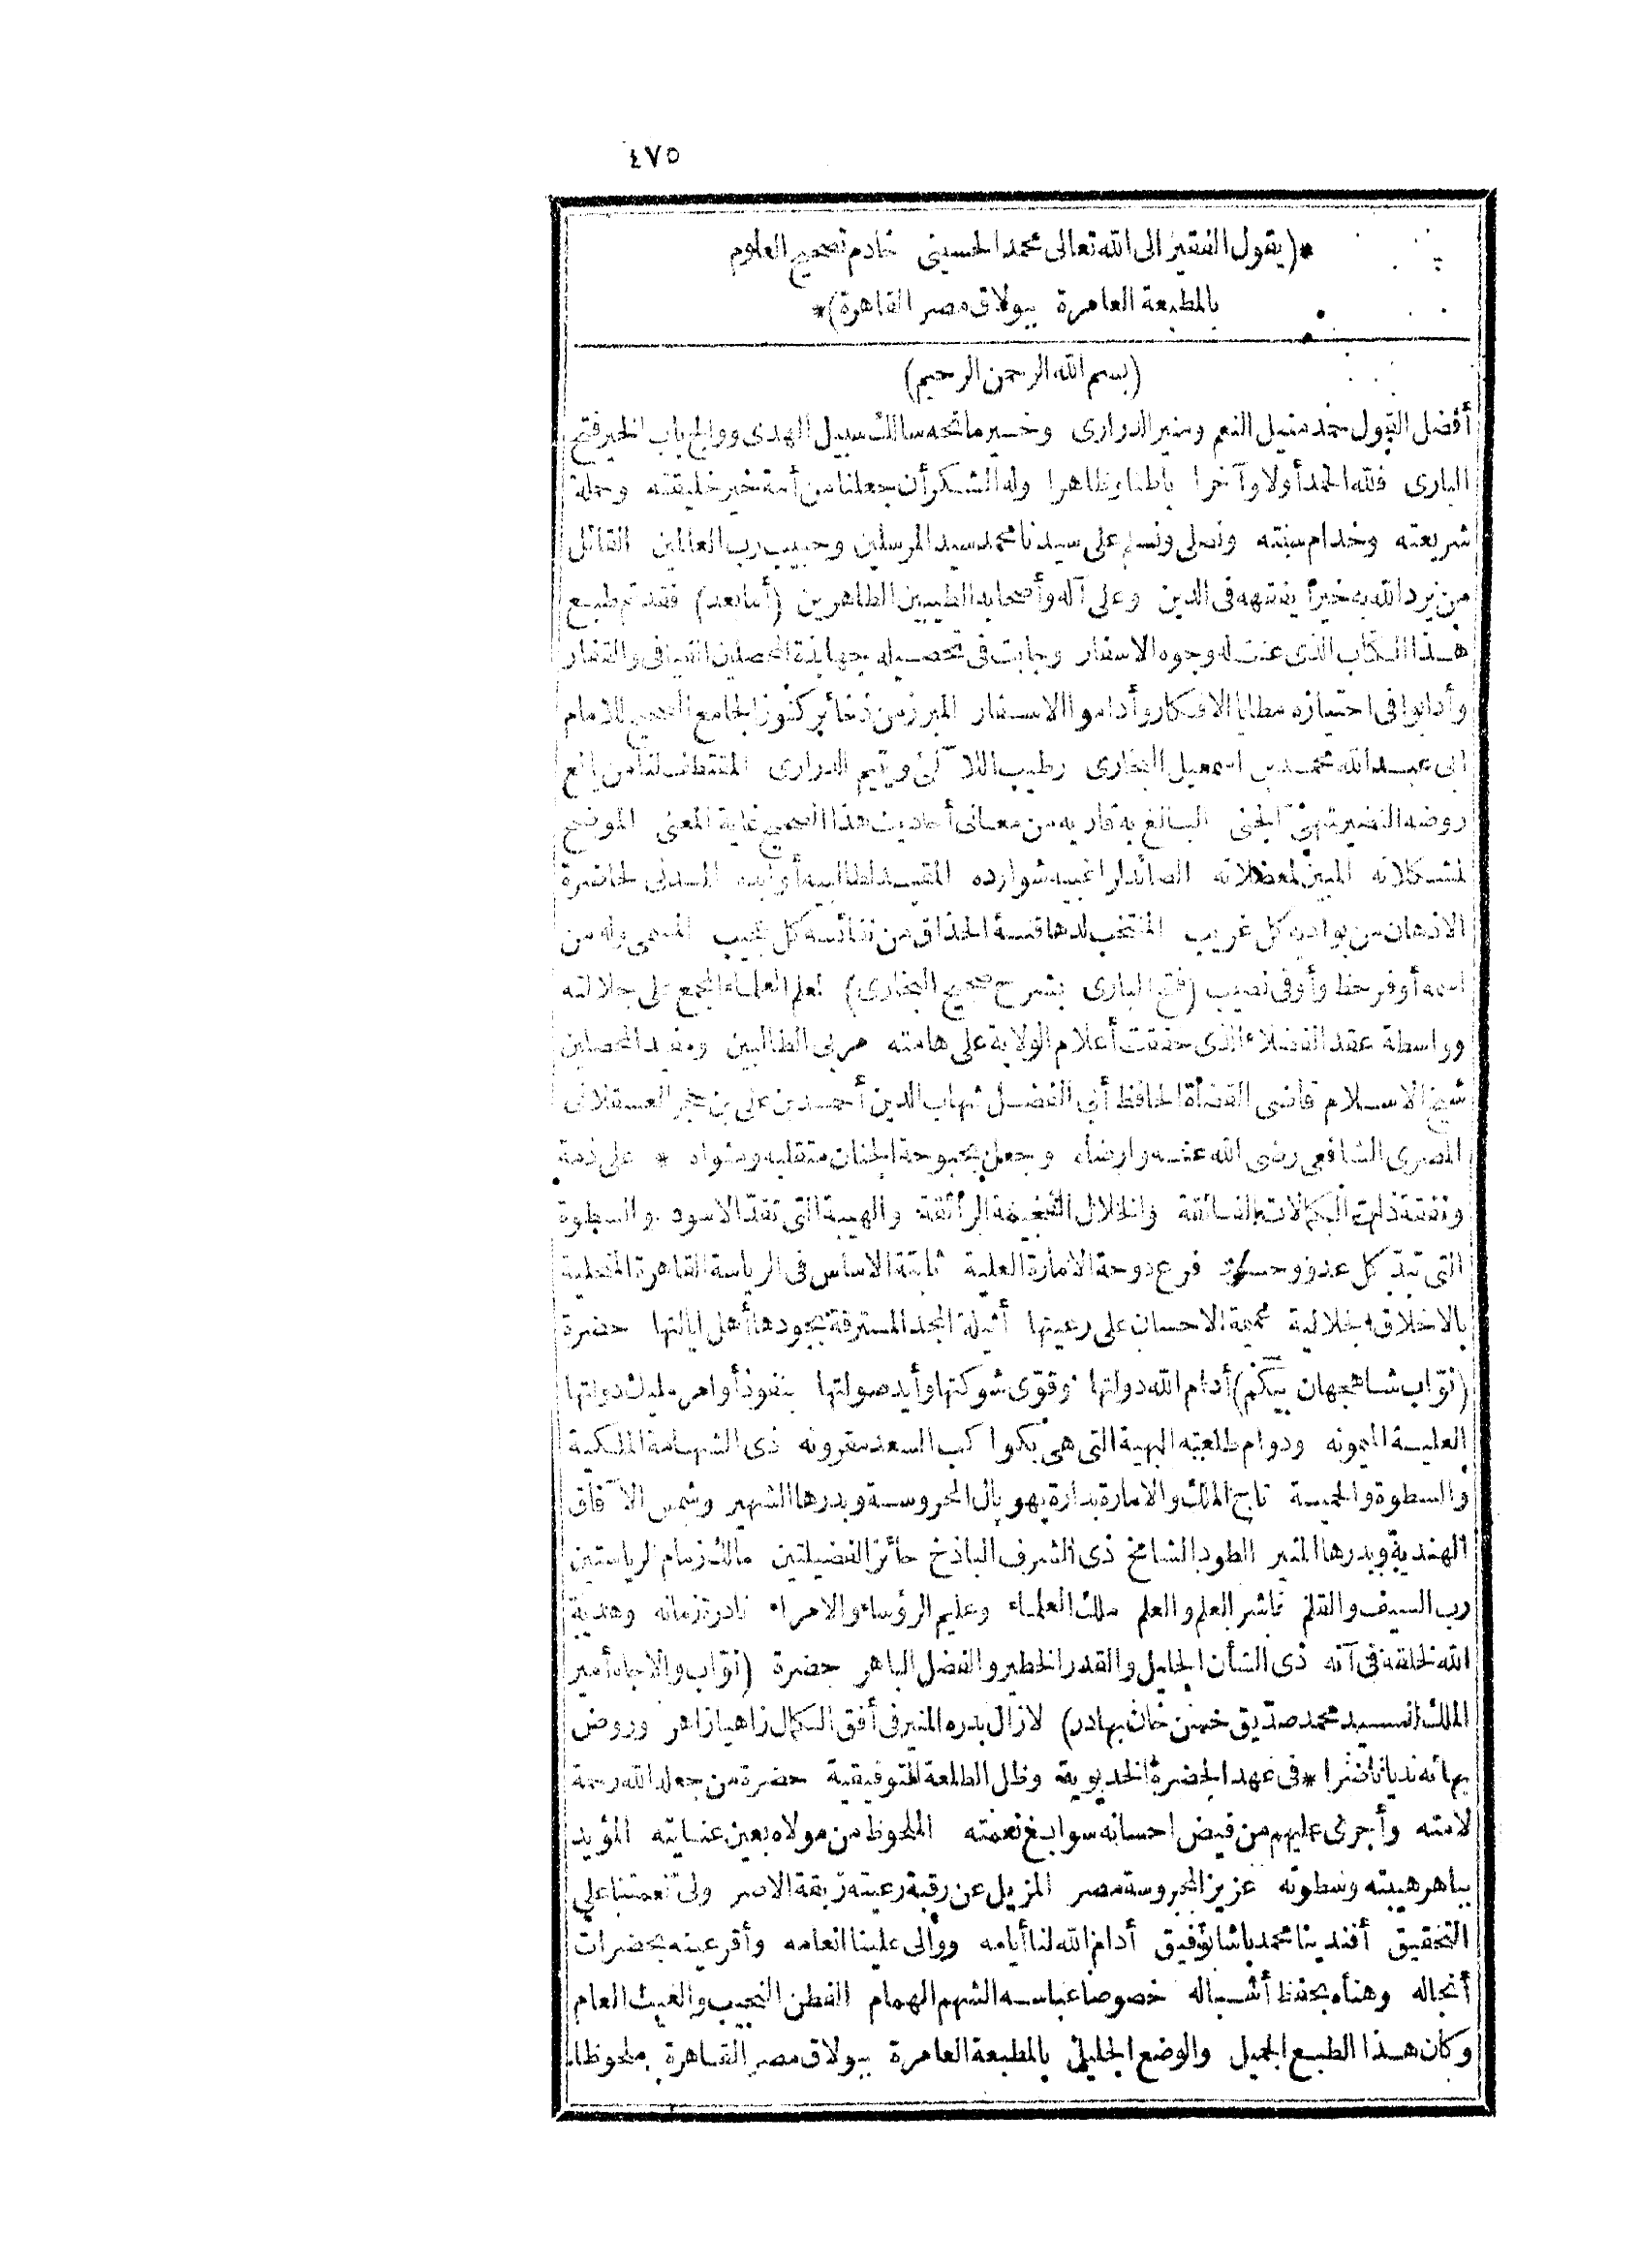 ٤٧٥
*(يقول الفقير الى الله تعالى محمد الحسينى خادم تصحيح العلوم
بالمطبعة العامرة ببولاق مصر القاهرة)*
(بسم الله الرحمن الرحيم)
أفضل القبول حمد منيل النعم ومنير الدرارى وخير ما نحاه سالك سبيل الهدى ووالج باب الخير فتح
البارى فلله الحمد أولا وآخرا باطنا وظاهرا وله الشكر أن جعلنا من أمة خير خليقته وحملة
شريعته وخدام سنته ونصلى ونسلم على سيدنا محمد سيد المرسلين وحبيب رب العالمين القائل
من يرد الله به خيرا يفقهه فى الدين وعلى آله وأصحابه الطيبين الطاهرين (أما بعد) فقد تم طبع
هذا الكتاب الذى عنت له وجوه الاسفار وجابت فى تحصيله جهابذة المحصلين الفيافى والقفار
وأدابوا فى احتيازه مطايا الافكار وأداموا الاسفار المبرز من ذخائر كنوز الجامع الصحيح للامام
ابى عبد الله محمد بن اسمعيل البخارى رطيب اللآلئ ويتيم الدرارى المقتطف لنا من يانع
روضه النضير شهىّ الجنى البالغ به قاريه من معانى أحاديث هذا الصحيح غاية المعنى الموضح
لمشكلاته المبين لمعضلاته الصائد لراغبيه شوارده المقيد لطالبيه أوابده المدنى لحاضرة
الاذهان من بواديه كل غريب المنتخب لدهاقنة الحذاق من نفائسه كل نجيب المسمى وله من
اسمه أوفر حظ وأوفى نصيب (فتح البارى بشرح صحيح البخارى) لعلم العلماء المجمع على جلالته
وواسطة عقد الفضلاء الذى خفقت أعلام الولاية على هامته مربى الطالبين ومفيد المحصلين
شيخ الاسلام قاضى القضاة الحافظ أبى الفضل شهاب الدين أحمد بن على بن حجر العسقلانى
المصرى الشافعى رضى الله عنه وارضاه وجعل بحبوحة الجنان متقلبه ومثواه * على ذمة
ونفقة ذات الكمالات الفائقة والخلال الفخيمة الرائقة والهيبة التى تقدّ الاسود والسطوة
التى تبدّ كل عدوّ وحسود فرع دوحة الامارة العلية ثابتة الاساس فى الرياسة القاهرة المتحلية
بالاخلاق الجلالية مميمة الاحسان على رعيتها أثيلة المجد المسترقة بجودها أهل ايالتها حضرة
(نوّاب شاهجهان بيكم) أدام الله دولتها وقوّى شوكتها وأيد صولتها بنفوذ أوامر مليك دولتها
العلية الميمونه ودوام طلعته البهية التى هى بكواكب السعد مقرونه ذى الشهامة الملكية
والسطوة والحمية تاج الملك والامارة بدارة بهوپال المحروسة وبدرها الشهير وشمس الآفاق
الهندية وبدرها المنير الطود الشامخ ذى الشرف الباذخ حائز الفضيلتين مالك زمام الرياستين
رب السيف والقلم ناشر العلم والعلم ملك العلماء وعليم الرؤساء والامراء نادرة زمانه وهدية
الله لخلقه فى آنه ذى الشأن الجليل والقدر الخطير والفضل الباهر حضرة (نوّاب والاجاه أمير
الملك السيد محمد صدّيق حسن خان بهادر) لازال بدره المنير فى أفق الكمال زاهيا زاهر وروض
بهائه نديا ناضرا * فى عهد الحضرة الخديوية وظل الطلعة التوفيقية حضرة من جعله الله رحمة
لامته وأجرى عليهم من فيض احسانه سوابغ نعمته الملحوظ من مولاه بعين عنايته المؤيد
بباهر هيبته وسطوته عزيز المحروسة مصر المزيل عن رقبة رعيته ربقة الاصر ولىّ نعمتنا على
التحقيق أفندينا محمد باشا توفيق أدام الله لنا أيامه ووالى علينا انعامه وأقر عينه بحضرات
أنجاله وهنأه بحفظ أشباله خصوصا عباسه الشهم الهمام الفطن النجيب والغيث العام
وكان هذا الطبع الجميل والوضع الجليل بالمطبعة العامرة ببولاق مصر القاهرة ملحوظا